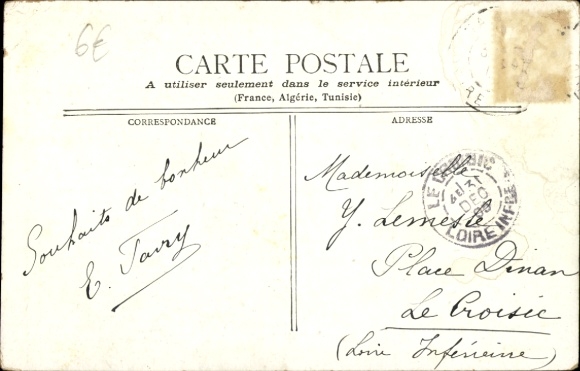 6€
CARTE POSTALE
A utiliser seulement dans le service intérieur
(France, Algérie, Tunisie)
CORRESPONDANCE
ADRESSE
Souhaits de bonheur
E.
Mademoiselle
Y. Lemesle
Place Dinan
Le Croisic
(Loire Inférieure)
LE CROISIC
31
DEC
LOIRE INFRE